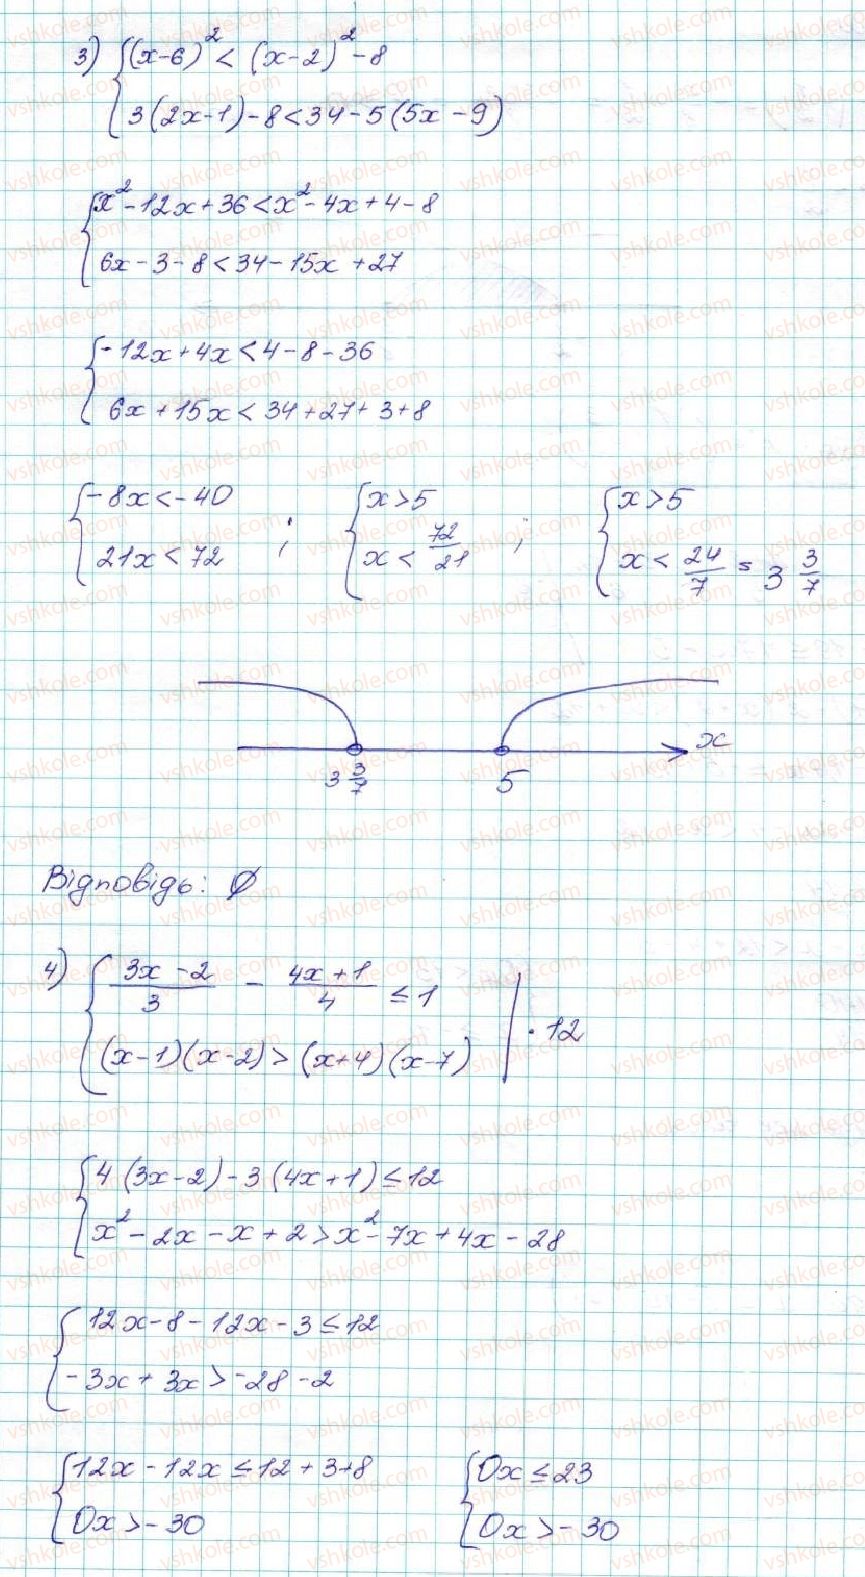 3) { (x-6)² < (x-2)² - 8
3(2x-1) - 8 < 34 - 5(5x - 9)
{ x² - 12x + 36 < x² - 4x + 4 - 8
6x - 3 - 8 < 34 - 15x + 27
{ -12x + 4x < 4 - 8 - 36
6x + 15x < 34 + 27 + 3 + 8
{ -8x < -40 ; { x > 5 ; { x > 5
21x < 72 x < 72/21 x < 24/7 = 3 3/7
x
3 3/7 5
Відповідь: Ø
4) { (3x - 2)/3 - (4x + 1)/4 ≤ 1 | · 12
(x-1)(x-2) > (x+4)(x-7)
{ 4(3x-2) - 3(4x+1) ≤ 12
x² - 2x - x + 2 > x² - 7x + 4x - 28
{ 12x - 8 - 12x - 3 ≤ 12
-3x + 3x > -28 - 2
{ 12x - 12x ≤ 12 + 3 + 8 { 0x ≤ 23
0x > -30 0x > -30